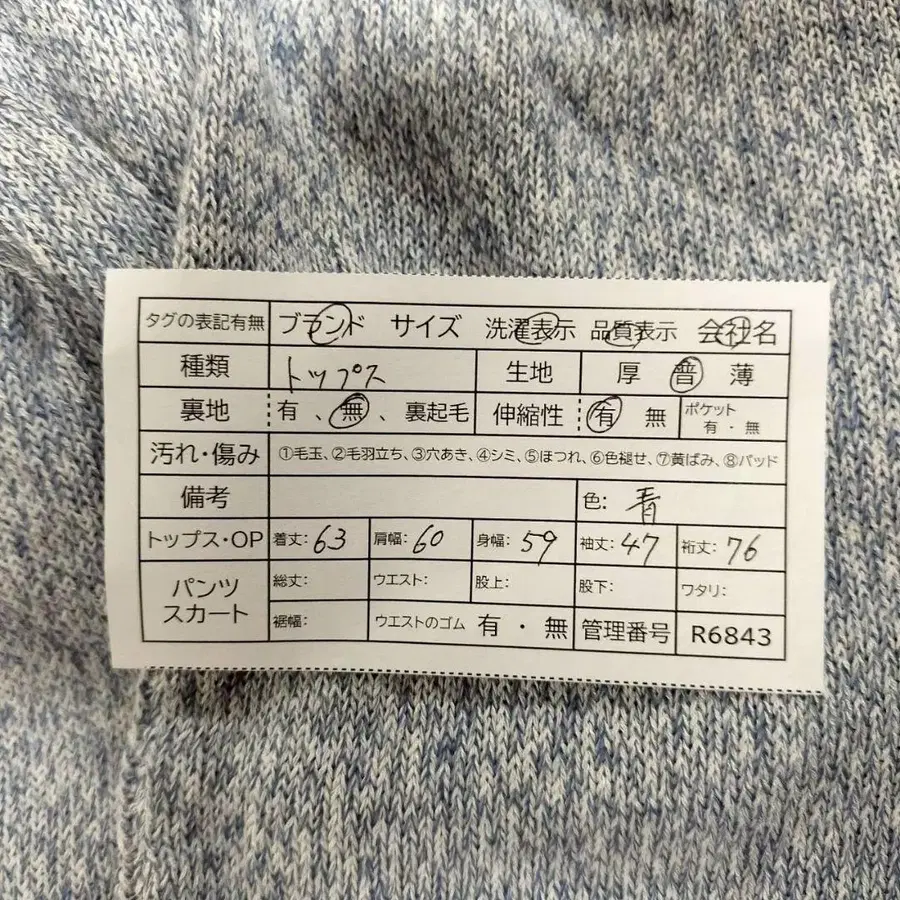 タグの表記有無 ブランド サイズ 洗濯表示 品質表示 会社名
種類 トップス 生地 厚 普 薄
裏地 有、無、裏起毛 伸縮性 有 無 ポケット 有・無
汚れ・傷み ①毛玉、②毛羽立ち、③穴あき、④シミ、⑤ほつれ、⑥色褪せ、⑦黄ばみ、⑧パッド
備考 色: 青
トップス・OP 着丈: 63 肩幅: 60 身幅: 59 袖丈: 47 裄丈: 76
パンツ スカート 総丈: ウエスト: 股上: 股下: ワタリ:
裾幅: ウエストのゴム 有・無 管理番号 R6843